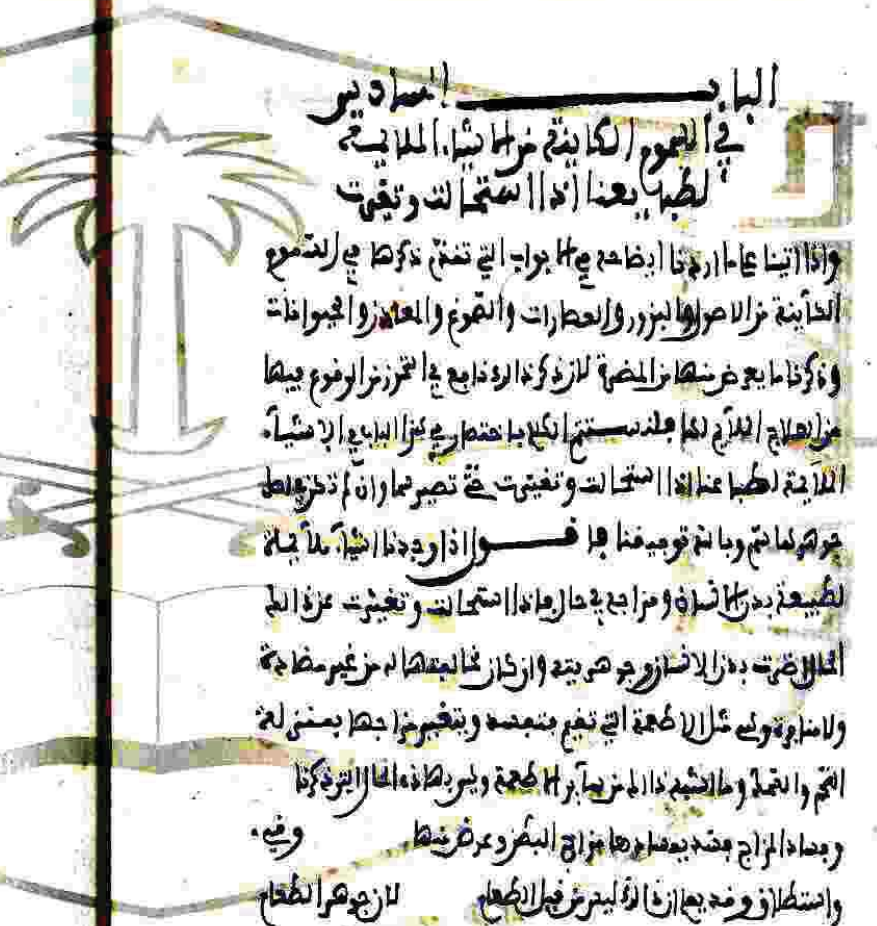 الباب السادس
في السموم الكاينة من الاشياء الملايمة
لطباعنا اذا استحالت وتغيرت
واذ اتينا على ما اردنا ايضاحه في الابواب التي تقدم ذكرها في السموم
الكاينة من الاصول والبزور والعصارات والصموغ والمعادن والحيوانات
وذكرنا ما يعرض منها من المضرة لان ذكرنا لذلك نافع في التحرز من الوقوع فيها
من العلاج الملايم لها فلنستتم الكلام باختصار في هذا الباب في الاشياء
الملايمة لطباعنا اذا استحالت وتغيرت حتى تصير سما وان لم تكن
جوهرها سم وبالله توفيقنا فاقول اذا وجدنا اشياء ملايمة
لطبيعة بدن الانسان ومزاجه في حال ما اذا استحالت وتغيرت عن ذلك
الحال اضرت بدن الانسان وجوهريته وان كان مخالفتها له من غير مضادة
ولا منافرة مثل الاطعمة التي تغير بنفسه وبتغير مزاجها بمنزلة
وما اشبه ذلك من ساير الاطعمة وليس هذه الحال التي ذكرنا
وفساد المزاج فقد يفسدها مزاج البطن وعرض منها وفيء
واستطلاق وقد لان ذلك ليس من قبل الطعام لان جوهر الطعام